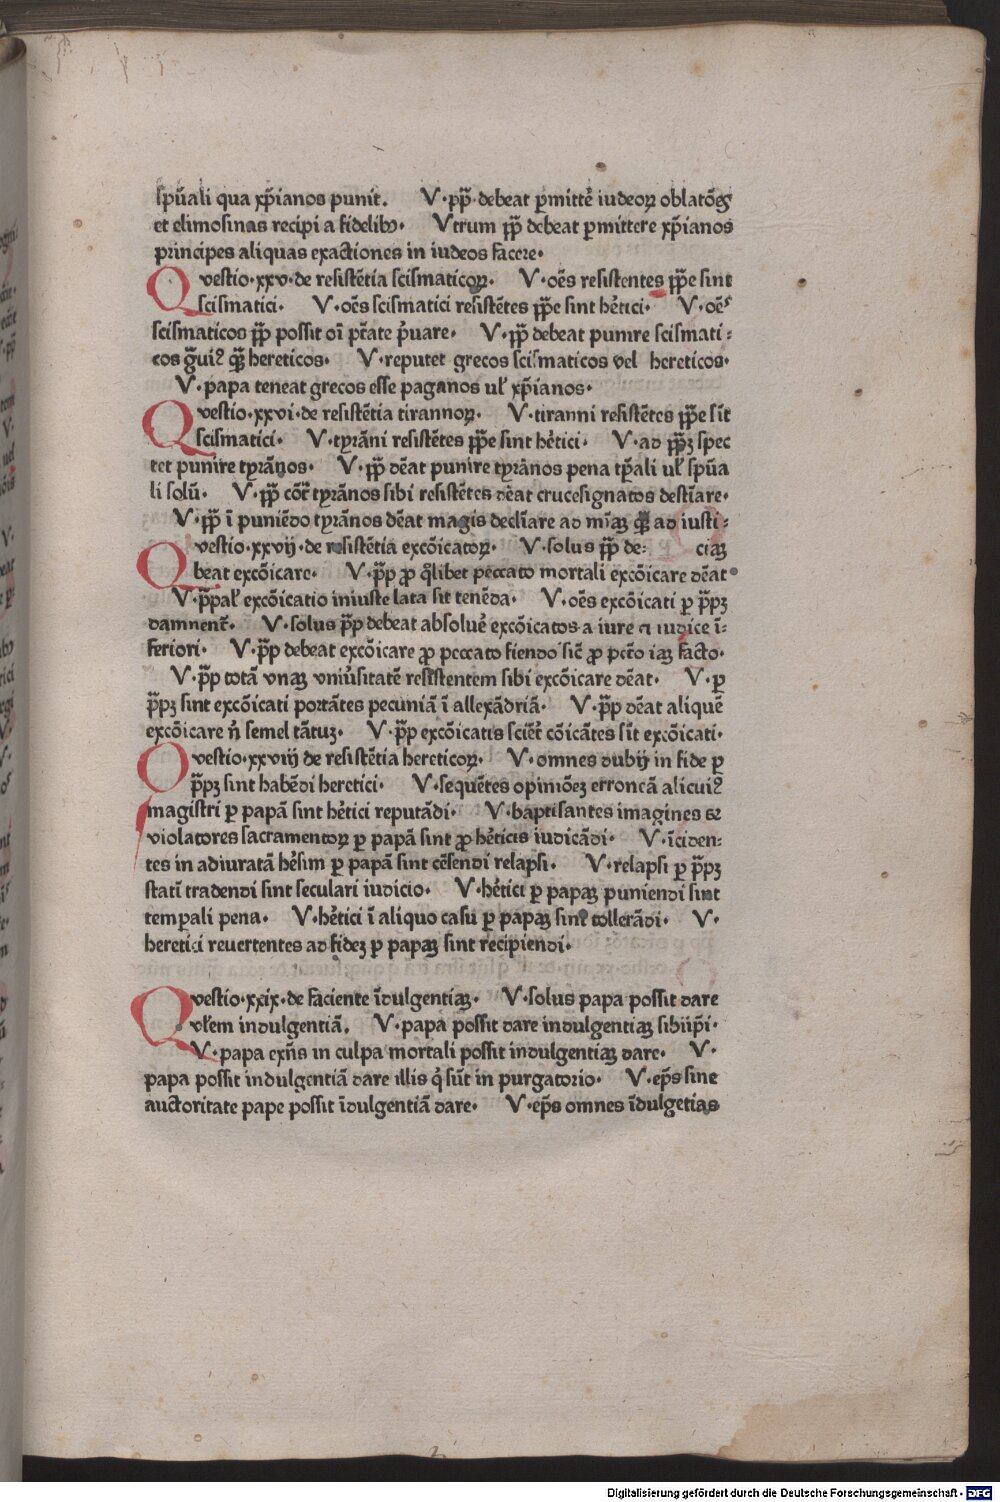 spũali qua xp̃ianos punit. V·pp̃·debeat ꝑmittẽ iudeoꝝ oblatõẽs
et elimosinas recipi a fidelibꝰ· Vtrum pp̃ debeat ꝑmittere xp̃ianos
principes aliquas exactiones in iudeos facere·
Qvestio·xxv·de resistẽtia scismaticoꝝ. V·oẽs resistentes pp̃e sint
scismatici· V·oẽs scismatici resistẽtes pp̃e sint hẽtici· V·oẽs
scismaticos pp̃ possit oĩ ptãte p̃uare· V·pp̃ debeat punire scismati:
cos gꝰuiꝰ q̃ꝫ hereticos· V·reputet grecos scismaticos vel hereticos·
V·papa teneat grecos esse paganos uł xp̃ianos·
Qvestio·xxvi·de resistẽtia tirannoꝝ. V·tiranni resistẽtes pp̃e sĩt
scismatici· V·tyrãni resistẽtes pp̃e sint hẽtici· V·ad pp̃ꝫ spec
tet punire tyrãnos· V·pp̃ dẽat punire tyrãnos pena tp̃ali uł spũa
li solũ· V·pp̃ cõtˀ tyrãnos sibi resistẽtes dẽat crucesignatos destĩare·
V·pp̃ ĩ puniẽdo tyrãnos dẽat magis declĩare ad mĩaꝫ q̃ꝫ ad iusti:
Qvestio·xxvij·de resistẽtia excõicatoꝝ. V·solus pp̃ de: ciaꝫ
beat excõicare· V·pp̃ ꝓ q̃libet peccato mortali excõicare dẽat
V·pp̃ał excõicatio iniuste lata sit tenẽda· V·oẽs excõicati ꝑ pp̃ꝫ
damnentˀ· V·solus pp̃ debeat absoluẽ excõicatos a iure ⁊ iudice ĩ:
feriori· V·pp̃ debeat excõicare ꝓ peccato fiendo sic̃ ꝓ pctõ iaꝫ facto·
V·pp̃ totã vnaꝫ vniũsitatẽ resistentem sibi excõicare dẽat· V·ꝑ
pp̃ꝫ sint excõicati portãtes pecuniã ĩ allexãdriã· V·pp̃ dẽat aliquẽ
excõicare ñ semel tãtuꝫ· V·pp̃ excõicatis sciẽtˀ cõicãtes sĩt excõicati·
Qvestio·xxviij de resistẽtia hereticoꝝ. V·omnes dubij in fide ꝑ
pp̃ꝫ sint habẽdi heretici· V·sequẽtes opiniõeꝫ erroneã alicuiꝰ
magistri ꝑ papã sint hẽtici reputãdi· V·baptisantes imagines et
violatores sacramentoꝝ ꝑ papã sint ꝓ hẽticis iudicãdi· V·ĩciden:
tes in adiuratã hẽsim ꝑ papã sint cẽsendi relapsi· V·relapsi ꝑ pp̃ꝫ
statĩ tradendi sint seculari iudicio· V·hẽtici ꝑ papaꝫ puniendi sunt
temꝑali pena· V·hẽtici ĩ aliquo casu ꝑ papaꝫ sint tollerãdi· V·
heretici reuertentes ad fideꝫ ꝑ papaꝫ sint recipiendi·
Qvestio·xxix·de faciente ĩdulgentiaꝫ· V·solus papa possit dare
vłem indulgentiã. V·papa possit dare indulgentiaꝫ sibiip̃i·
V·papa exñs in culpa mortali possit indulgentiaꝫ dare· V·
papa possit indulgentiã dare illis q̃ sũt in purgatorio· V·ep̃s sine
auctoritate pape possit ĩdulgentiã dare· V·ep̃s omnes ĩdulgetias
Digitalisierung gefördert durch die Deutsche Forschungsgemeinschaft - DFG